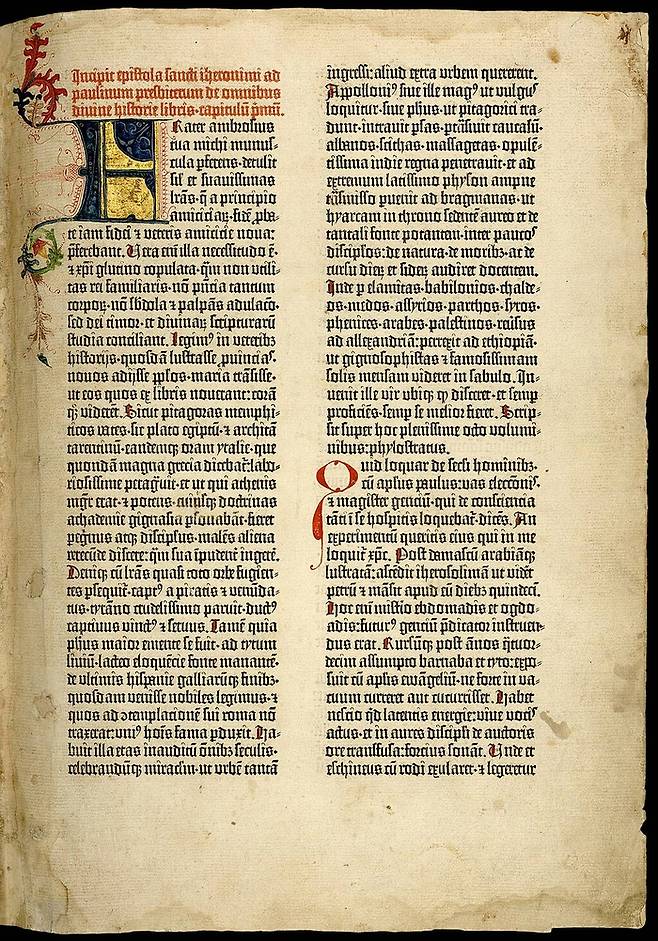 Incipit epistola sancti iheronimi ad
paulinum presbiterum de omnibus
divine historie libris·capitulū pmū.
Frater ambrosius
tua michi munus-
cula pferens·detulit
sil' et suavissimas
lrās·q̄ a principio
amiciciaꝝ·fidē pba-
te iam fidei ⁊ veteris amicicie nova:
pferebant. Vera eni illa necessitudo ē·
⁊ xpi glutino copulata·qm non utili-
tas rei familiaris·nō pncia tantum
corpoꝝ·nō sbdola ⁊ palpās adulaco·
sed dei timor·et divinaꝝ scripturarū
studia conciliant. Legim⁹ in veteribꝫ
historijs·quosdā lustrasse puincias·
novos adijsse pplos·maria trāsisse·
ut eos quos ex libris noverant:corā
qꝫ viderēt. Sicut pitagoras memphi-
ticos vates·sic plato egiptū·⁊ architā
tarentinū·eandemqꝫ oram ytalie·que
quondā magna grecia dicebat·labo-
riosissime peragūit·et ut qui athenis
mgr erat·⁊ potens·cuiusqꝫ doctrinas
achademie gignasia psonabāt·fieret
pegrinus atqꝫ discipulus·malēs aliena
verecūde discere:qm sua ipudent ingere.
Deniqꝫ cū lrās quasi toto orbe fugien-
tes psequit·capt⁹ a piratis ⁊ venūda-
tus·tyrāno crudelissimo paruit·duct⁹
captivus vinct⁹ ⁊ servus. Tamē quia
phus maior emente se fuit·ad tytum
liviū·lacteo eloquēcie fonte manantē·
de ultimis hispanie galliarūqꝫ finibꝫ·
quosdam venisse nobiles legimus·⁊
quos ad ꝯtemplacionē sui roma nō
traxerat:uni⁹ hois fama pduxit. Ha-
buit illa etas inauditū oibꝫ seculis·
celebrandūqꝫ miraclm·ut urbē tantā
ingressi:aliud extra urbem quererent.
Appolloni⁹ sive ille mag⁹ ut vulgus
loquitur·sive phus·ut pitagorici tra-
dunt·intravit psas·ptrāsivit caucasū·
albanos·scithas·massagetas·opulē-
tissima indie regna penetravit·et ad
extremum latissimo physon amne
trāsmisso puenit ad bragmanas·ut
hyarcam in throno sedentē aureo et de
tantali fonte potantem·inter paucos
discipulos:de natura·de moribꝫ·ac de
cursu dierꝫ et siderꝫ audiret docentem.
Inde p elamitas·babilonios·chalde-
os·medos·assyrios·parthos·syros·
phenices·arabes·palestinos·reūsus
ad allexandriā:perrexit ad ethiopiā·
ut gignosophistas ⁊ famosissimam
solis mensam videret in sabulo. In-
venit ille vir ubiqꝫ qꝫ disceret·et semp
proficiēs·semp se melior fieret. Scrip-
sit super hoc plenissime octo volumi-
nibus:phylostratus.
Quid loquar de secli hominibꝫ·
cū aplus paulus:vas electōnis·
⁊ magister genciū·qui de consciencia
tāti i se hospitis loquebat:dicēs. An
experimentū queritis eius qui in me
loquit xpc. Post damascū arabiāqꝫ
lustratā:ascēdit iherosolimā ut videt
petrū ⁊ māsit apud eū diebꝫ quindeci.
Hoc eni misterio ebdomadis et ogdo-
adis:futur⁹ genciū pdicator instruen-
dus erat. Rursūqꝫ post ānos quatuor-
decim assumpto barnaba et tyto:expo-
suit cū aplis ewāgeliū·ne forte in va-
cuum curreret aut cucurrisset. Habet
nescio qid latentis energie:vive vocis
actus·et in aures discipli de auctoris
ore transfusa:forcius sonat. Unde et
eschineus cū rodi exularet·⁊ legeretur